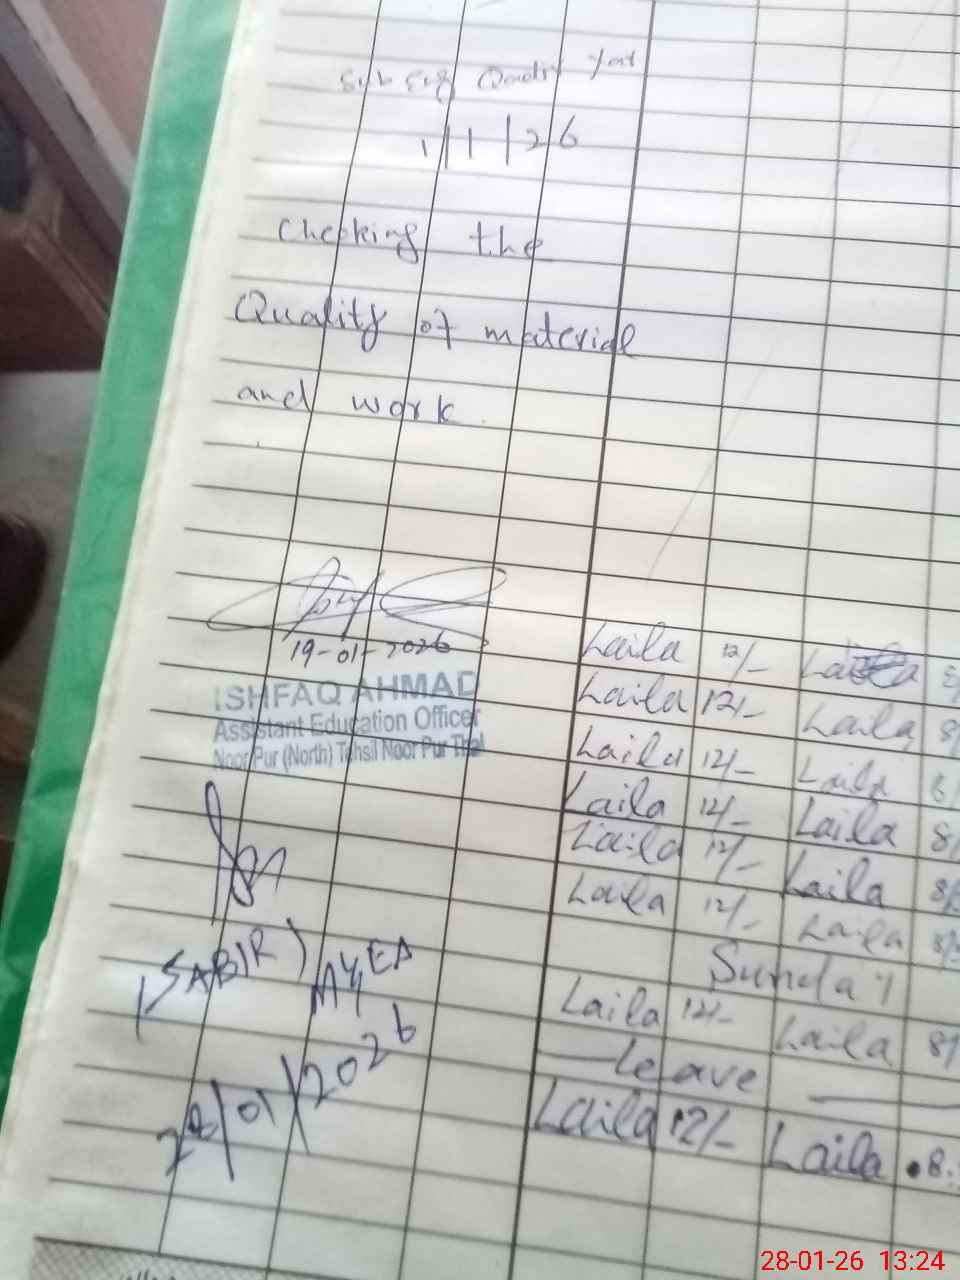 Sub Eng Quality
1/1/26
Checking the
Quality of material
and work.
19-01-2026
ISHFAQ AHMAD
Assistant Education Officer
Noor Pur (North) Tehsil Noor Pur Thal
(SABIR)
28/01/2026
Laila 12/-
Laila 12/- Laila 8/
Laila 12/- Laila
Laila 12/- Laila 8/
Laila 12/- Laila
Laila 12/- Laila
Sunday
Laila 12/- Laila 8/
Leave
Laila 12/- Laila 8
28-01-26 13:24